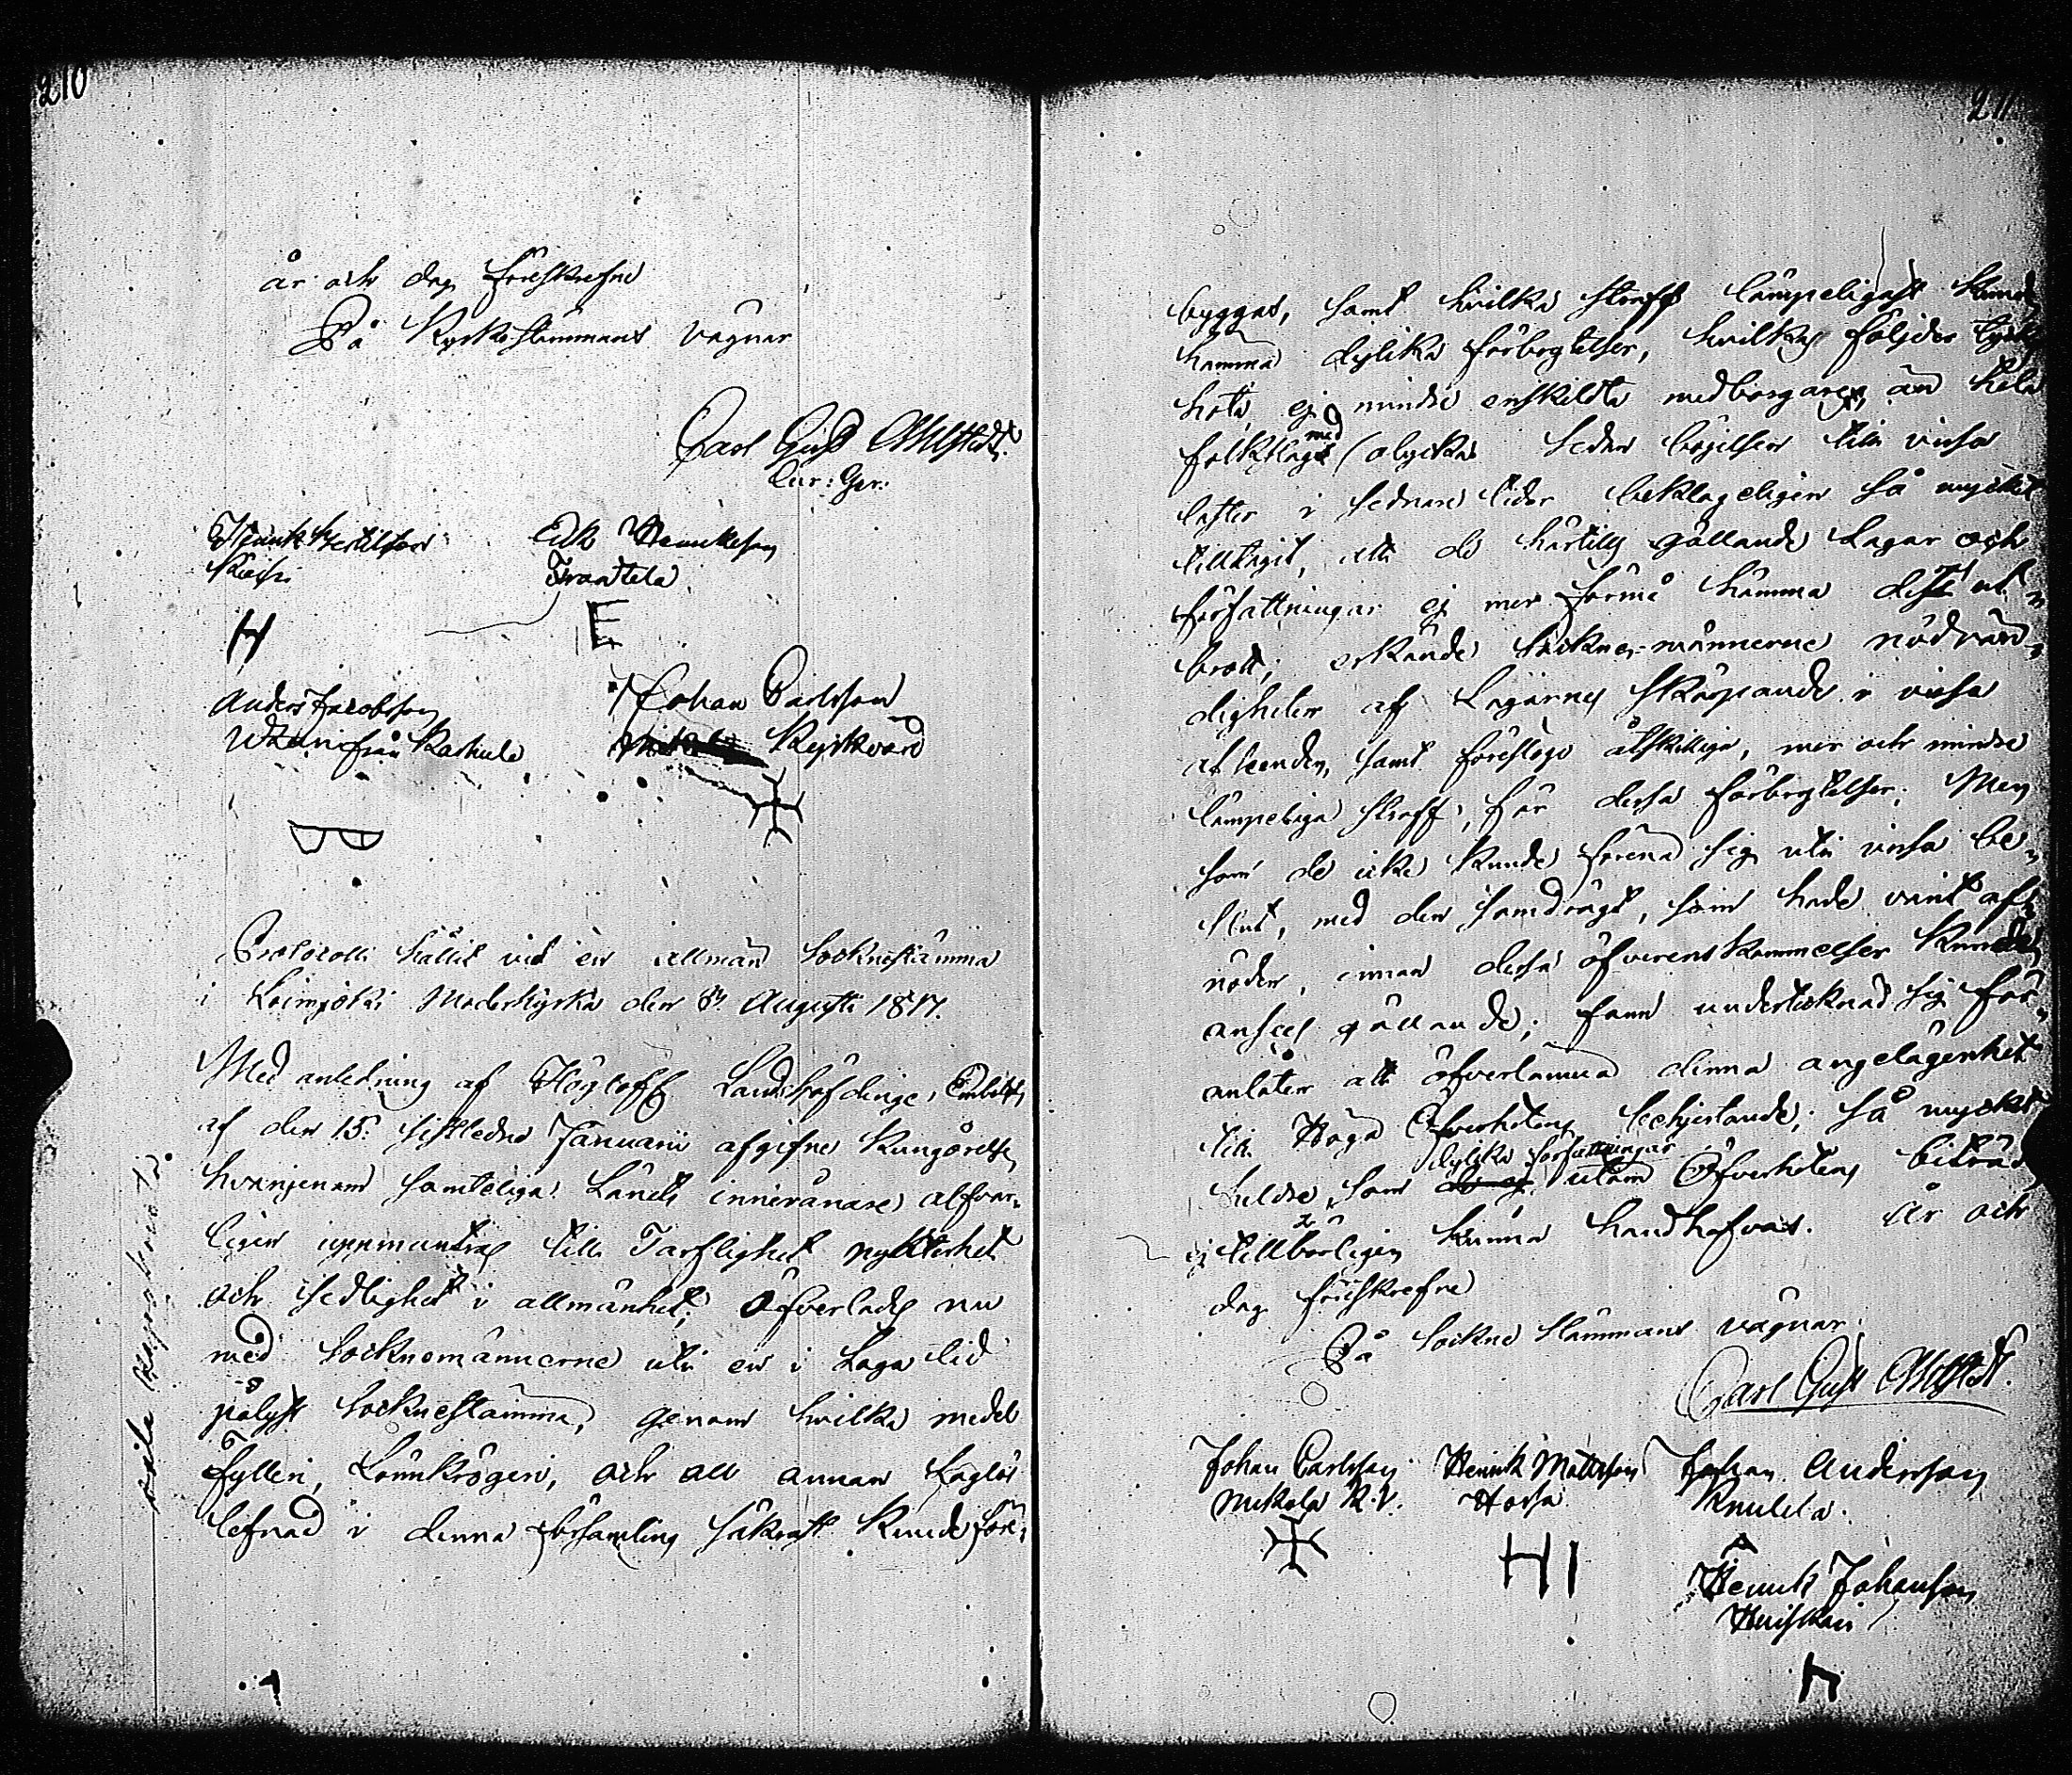 210
år och dag föreskrefne
På Kyrkostämmans vägnar
Carl Gust
Cur: Ger:
Henrik Bertilsson
Erik Henriksson
Frantila
H
E
Anders Jacobsson
från Karhula
Johan Carlsson
Kyrkvärd
Protocoll hållit vid en allmän Socknestämma
i Loimjoki Moderkyrka den 3 Augusti 1817.
Med anledning af Höglofl Landshöfdinge Embets
af den 15. sistledne Januarii afgifne Kungörelse
hvarigenom samtelige Länets innevånare alfvar-
ligen uppmuntras till Tarflighet nykterhet
och sedlighet i allmänhet; Öfverlades nu
med Socknemännerne uti en i Laga tid
pålyst Socknestämma, genom hvilka medel
Fylleri, Lönnkrögeri, och all annan Laglös
lefnad i denna församling säkrast kunde före-
211
byggas, samt hvilka straff lämpeligast kunde
hämma dylika förbrytelser, hvilkas följder
hota ej mindre enskildta medborgare, än hela
folkslags med olycka. Sedan böjelsen till vissa
laster i sednare tider beklageligen så mycket
tilltagit, att de härtills gällande Lagar och
författningar ej mer förmå hämma dess ut-
brott; erkände Sockne-männerne nödvän-
digheten af Lagarnes skärpande i vissa
afseenden, samt föreslogo åtskilliga, mer och mindre
lämpeliga straff, för dessa förbrytelser; Men
som de icke kunde förena sig uti vissa be-
slut, med den samdrägt, som hade varit af
nöden, innan dessa öfverenskommelser kunde
anses gällande; fann undertecknad sig för-
anlåten att öfverlämna denna angelägenhet
till Höga Öfverhetens beskjerande; så mycket
heldre, som dylika författningar utom Öfverhetens biträde
ej tillbörligen kunna handhafvas. År och
dag föreskrefne
På Sockne Stämmans vägnar
Carl Gust
Johan Carlsson
Mikola K.V.
Henrik Mattsson
Horsa
HI
Johan Andersson
Knuutila
Henrik Johansson